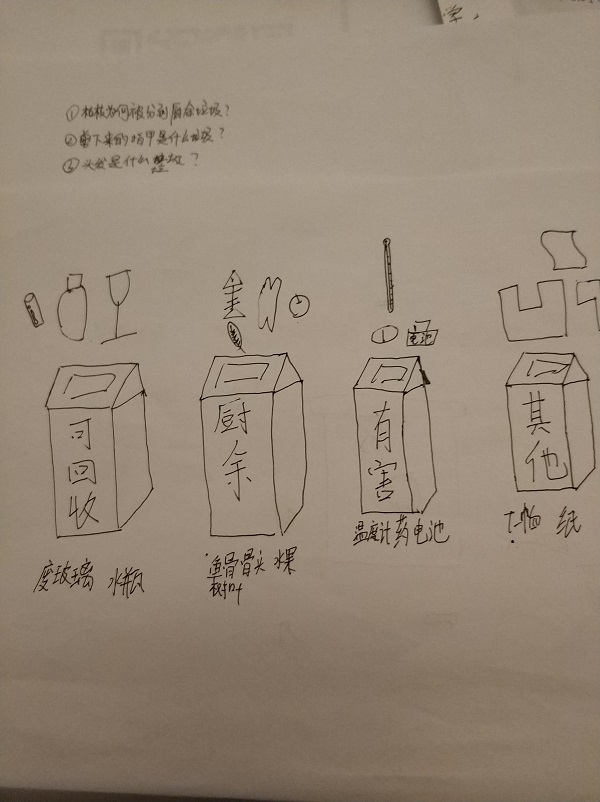 学,
①枯枝为何被分到厨余垃圾?
②剪下来的指甲是什么垃圾?
③头发是什么垃圾?
电池
可回收
厨余
有害
其他
废玻璃 水瓶
鱼骨骨头 水果
树叶
温度计药电池
纸